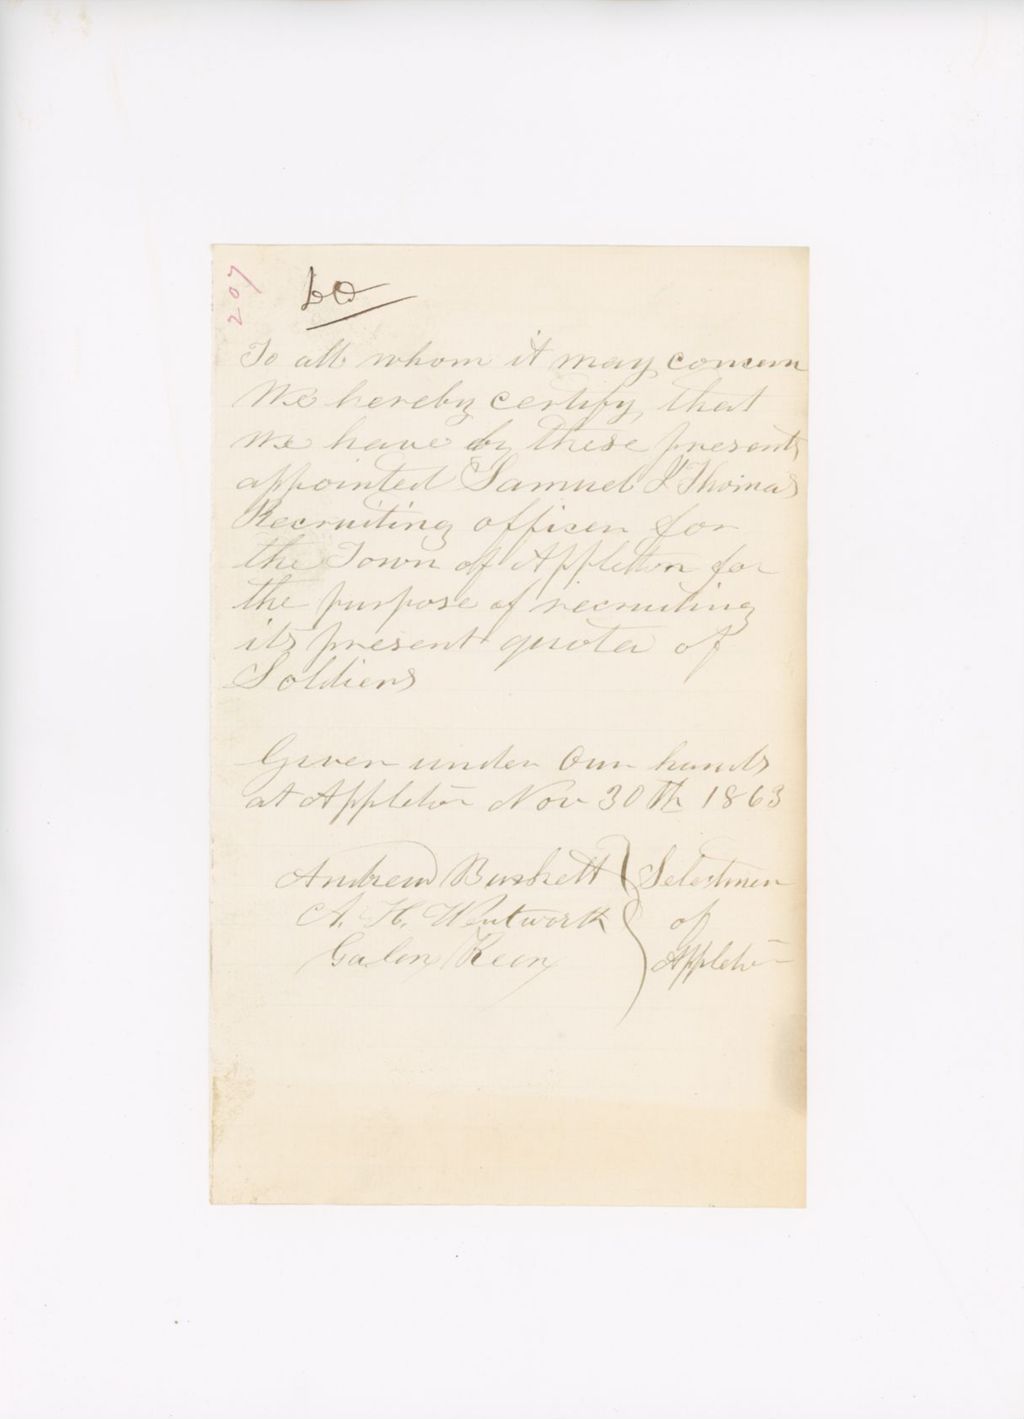 207
60
To all whom it may concern
We hereby certify, that
we have by these presents
appointed Samuel J Thomas
Recruiting officer for
the Town of Appleton for
the purpose of recruiting
its present quota of
Soldiers
Given under Our hands
at Appleton Nov 30th 1863
Andrew Burkett } Selectmen
A. H. Wentworth of
Galen Keen Appleton